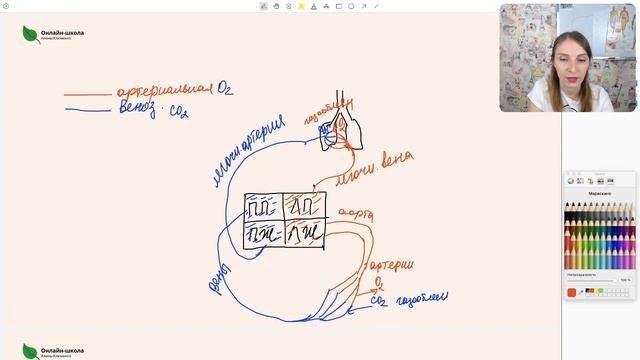 Онлайн-школа
Алены Клименко
артериальная O₂
веноз. CO₂
газообмен
лёгочн. артерия
лёгочн. вена
ПП
ЛП
ПЖ
ЛЖ
аорта
артерии
вены
O₂
CO₂ газообмен
Мараскино
Непрозрачность
100 %
Онлайн-школа
Алены Клименко